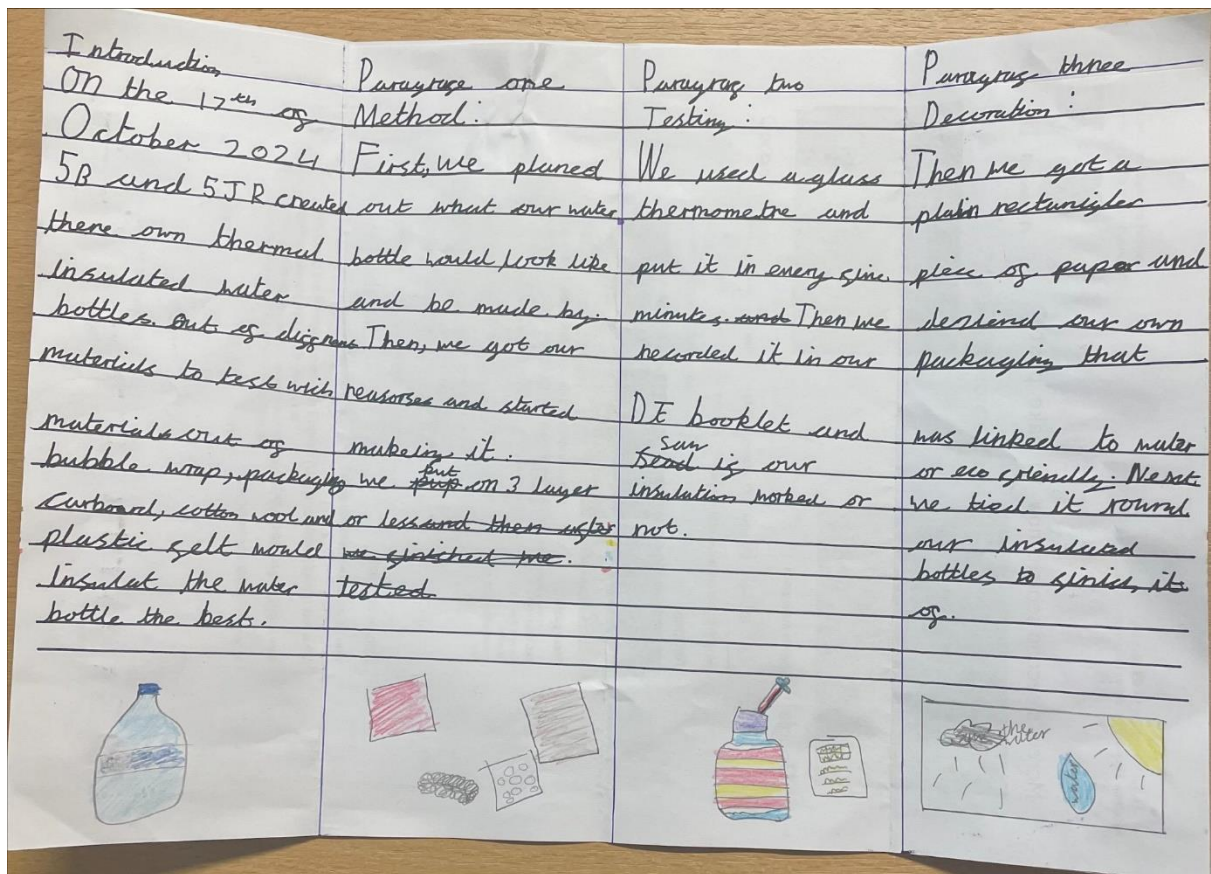 Introduction
On the 17th of
October 2024
5B and 5JR created
there own thermal
insulated water
bottles. Out of
materials to test wich
materials out of
bubble wrap, packaging
carboard, cotton wool and
plastic felt would
insulat the water
bottle the best.
Paragrage one
Method:
First, we planed
out what our water
bottle would look like
and be made by.
Then, we got our
reasorses and started
makeing it.
put
we on 3 layer
or less and then after
we finished we.
tested
Paragrarg two
Testing:
We used a glass
thermometre and
put it in every five
minutes. and Then we
recorded it in our
DE booklet and
saw
if our
insulation worked or
not.
Paragrag three
Decoration:
Then we got a
plain rectangler
piece of paper and
desiend our own
packaging that
was linked to water
or eco friendly. Next
we tied it round
our insulated
bottles to finish it
of.
the
water
water